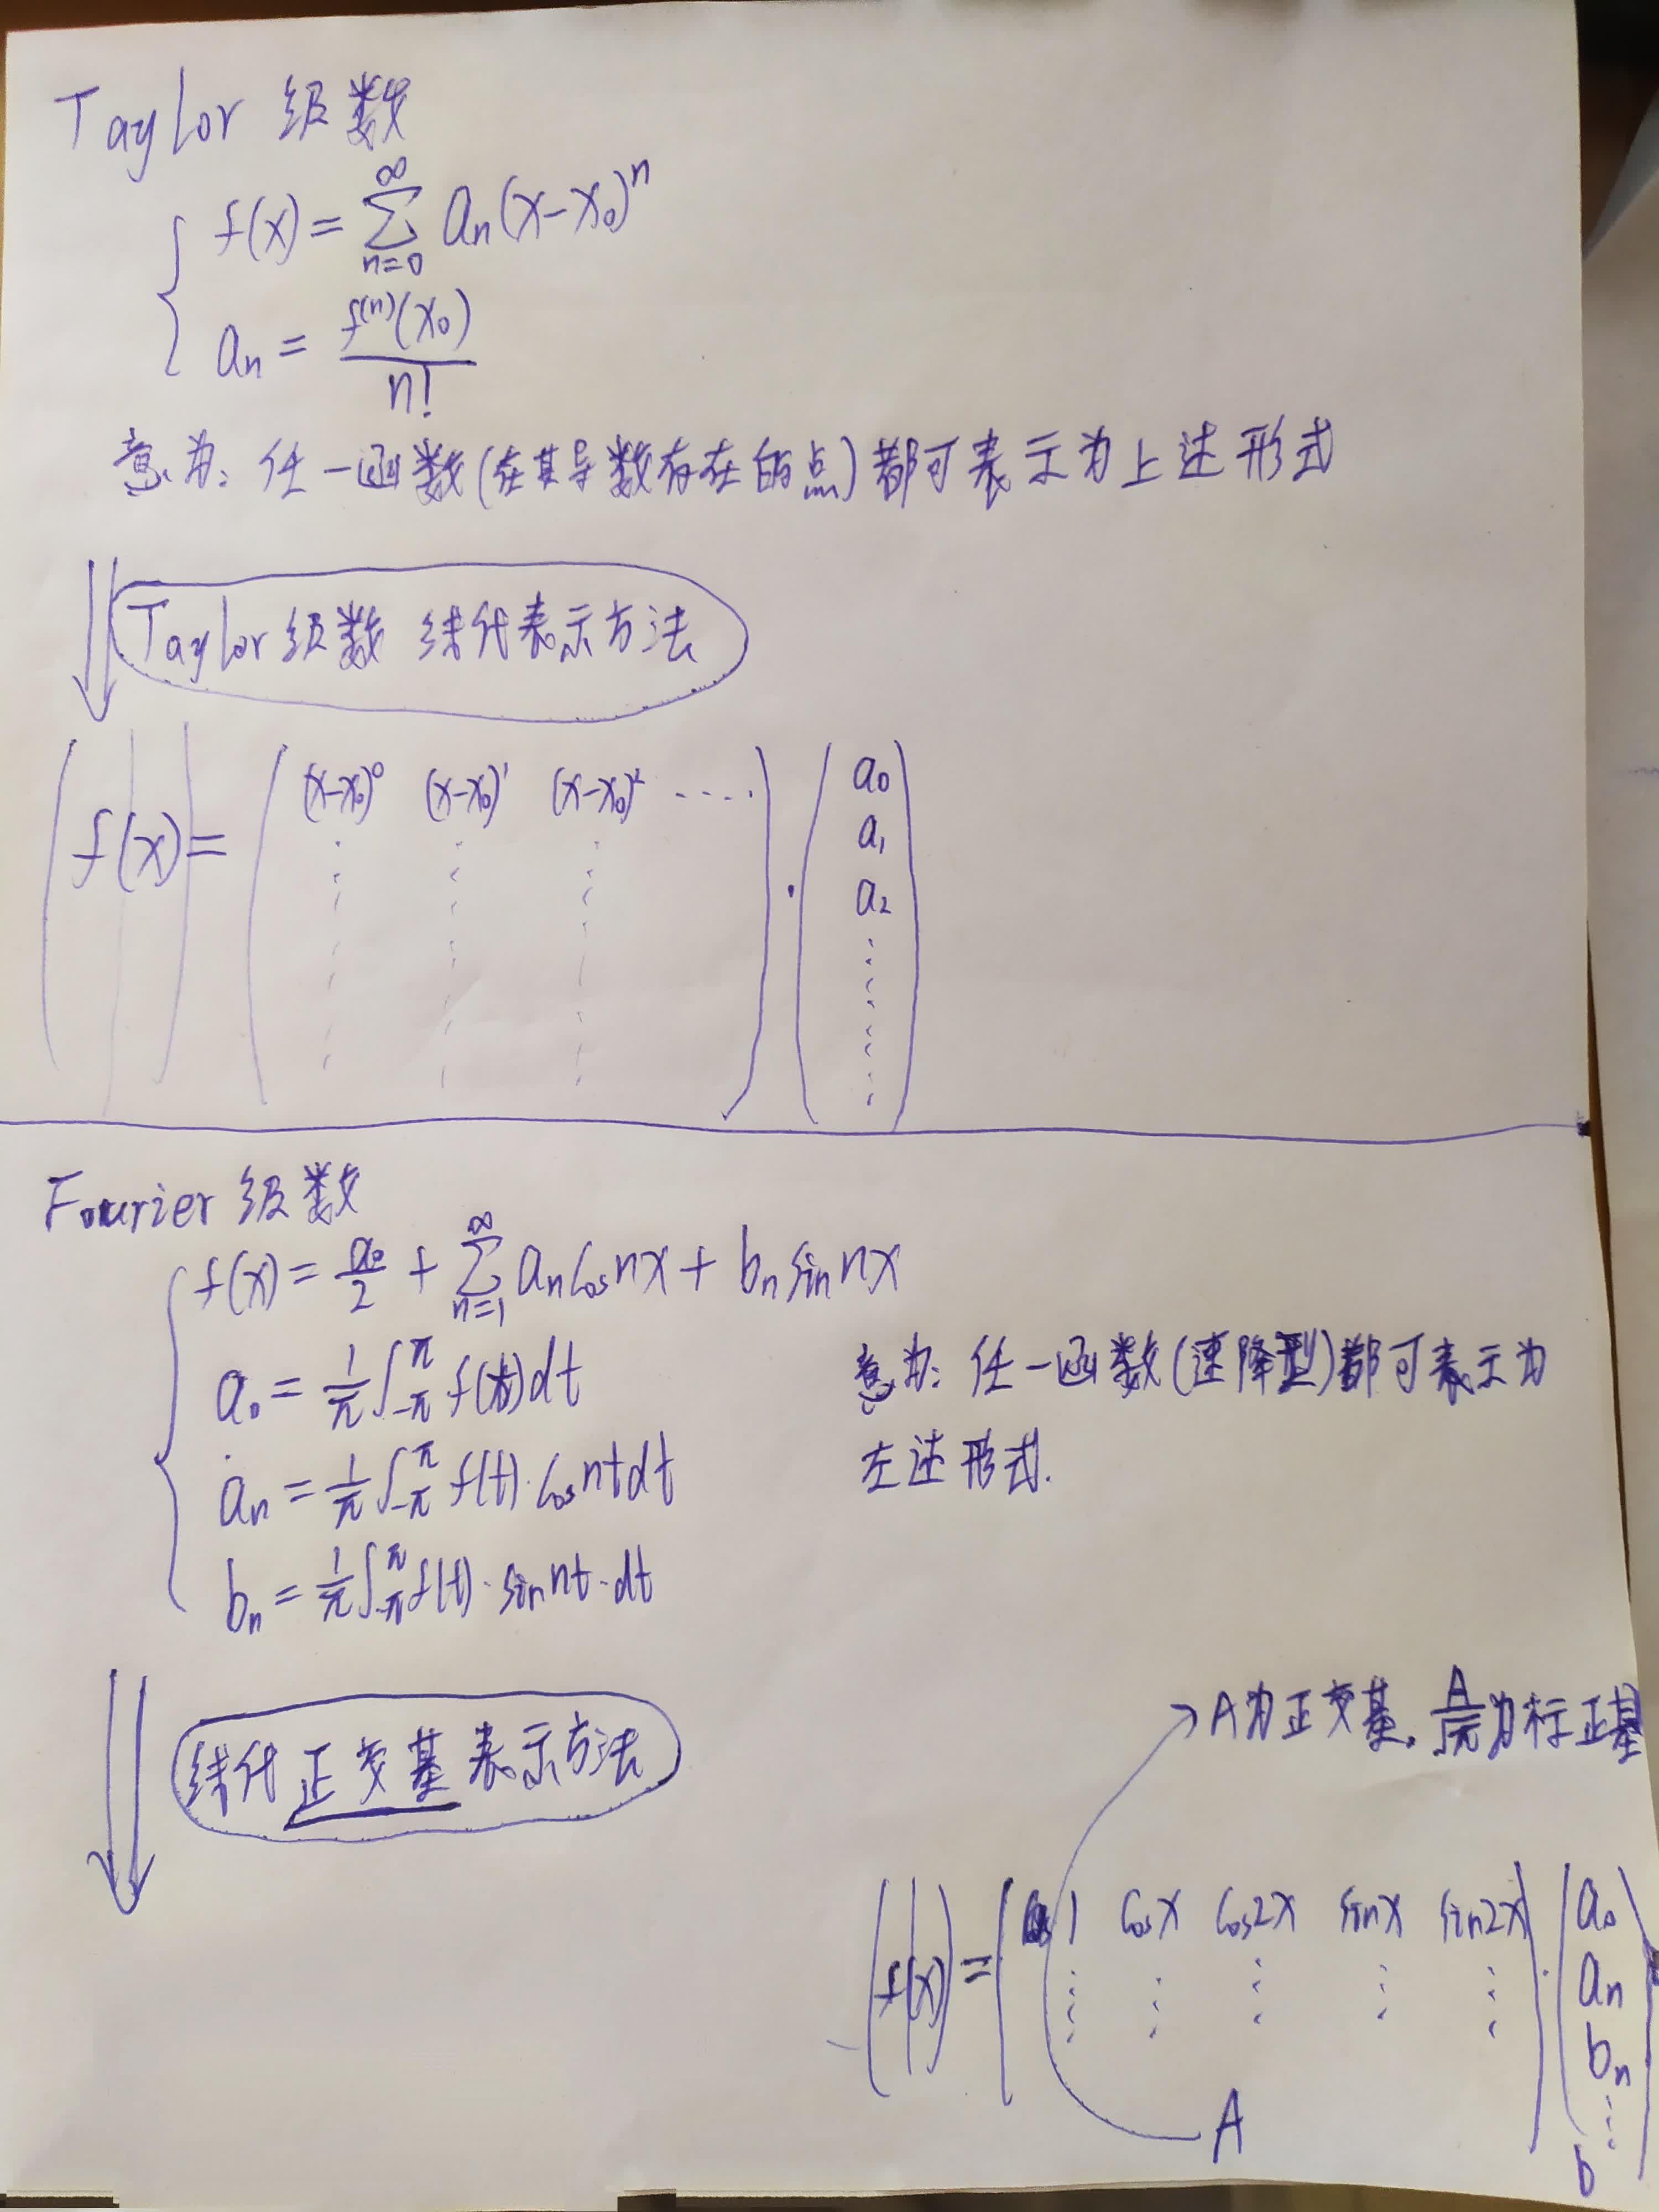 Taylor 级数
f(x) = ∑_{n=0}^{∞} aₙ(x-x₀)ⁿ
aₙ = f⁽ⁿ⁾(x₀) / n!
意为: 任一函数(在其导数存在的点)都可表示为上述形式
Taylor 级数 线代表示方法
(f(x)) = ( (x-x₀)⁰ (x-x₀)¹ (x-x₀)² ···· ) · ( a₀
a₁
a₂
⋮ )
Fourier 级数
f(x) = a₀/2 + ∑_{n=1}^{∞} aₙ cos nx + bₙ sin nx
a₀ = 1/π ∫_{-π}^{π} f(t)dt
aₙ = 1/π ∫_{-π}^{π} f(t)·cos nt dt
bₙ = 1/π ∫_{-π}^{π} f(t)·sin nt·dt
意为: 任一函数(速降型)都可表示为
左述形式.
线代正交基表示方法
A为正交基. A/√π为标正基
(f(x)) = ( 1 cos x cos 2x sin x sin 2x ) · ( a₀
aₙ
bₙ
⋮
b
A